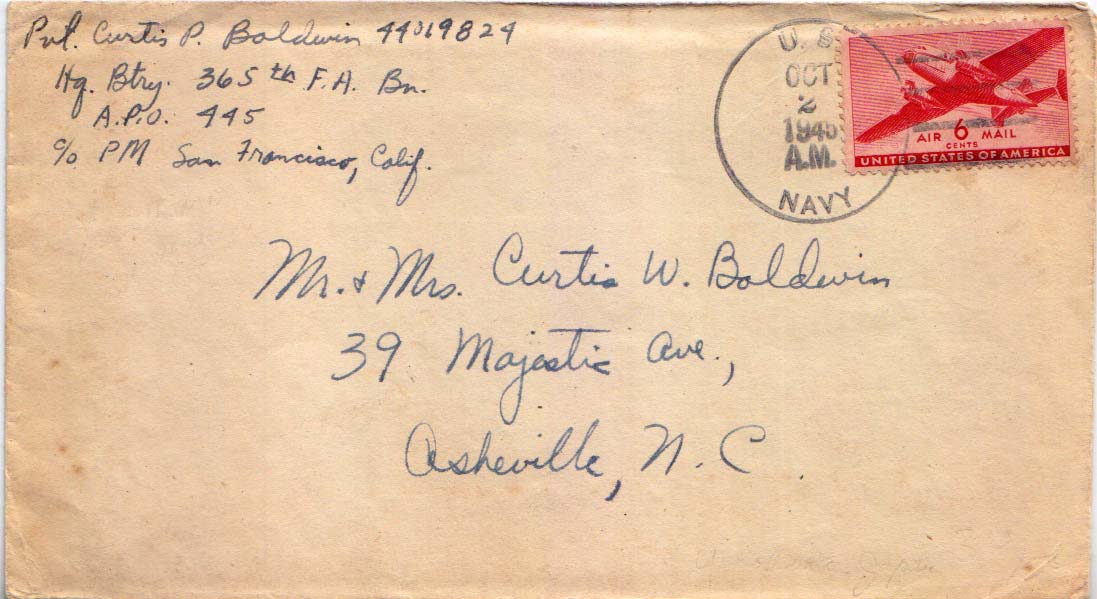 Pvt. Curtis P. Baldwin 44019824
Hq. Btry. 365th F.A. Bn.
A.P.O. 445
c/o PM San Francisco, Calif.
U. S.
OCT
2
1945
A.M.
NAVY
AIR 6 MAIL
CENTS
UNITED STATES OF AMERICA
Mr. & Mrs. Curtis W. Baldwin
39 Majestic Ave.,
Asheville, N. C.